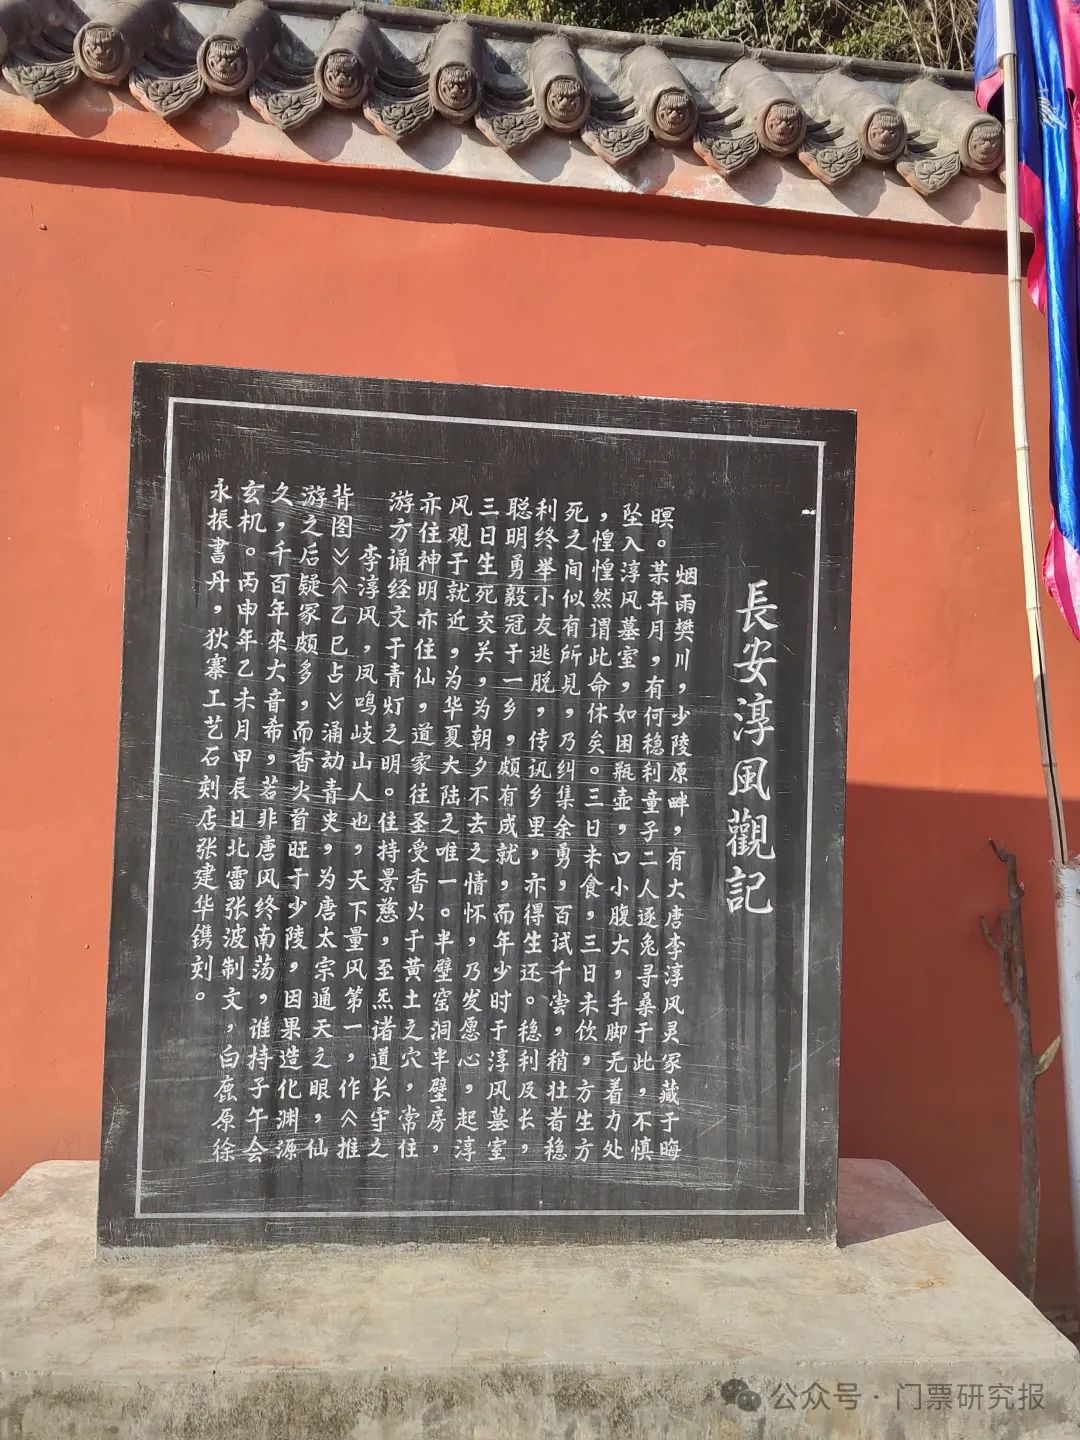 長安淳風觀記
烟雨樊川，少陵原畔，有大唐李淳风灵冢藏于晦
暝。某年月，有何稳利童子二人逐兔寻桑于此，不慎
坠入淳风墓室，如困瓶壶，口小腹大，手脚无着力处
，惶惶然谓此命休矣。三日未食，三日未饮，方生方
死之间似有所见，乃纠集余勇，百试千尝，稍壮者稳
利终举小友逃脱，传讯乡里，亦得生还。稳利及长，
聪明勇毅冠于一乡，颇有成就，而年少时于淳风墓室
三日生死交关，为朝夕不去之情怀，乃发愿心，起淳
风观于就近，为华夏大陆之唯一。半壁窑洞半壁房，
亦住神明亦住仙，道家往圣受香火于黄土之穴，常住
游方诵经文于青灯之明。住持景慈，至炁诸道长守之
李淳风，凤鸣岐山人也，天下量风第一，作《推
背图》《乙巳占》涌动青史，为唐太宗通天之眼，仙
游之后疑冢颇多，而香火首旺于少陵，因果造化渊源
久，千百年來大音希，若非唐风终南荡，谁持子午会
玄机。丙申年乙未月甲辰日北雷张波制文，白鹿原徐
永振書丹，狄寨工艺石刻店张建华镌刻。
公众号·门票研究报